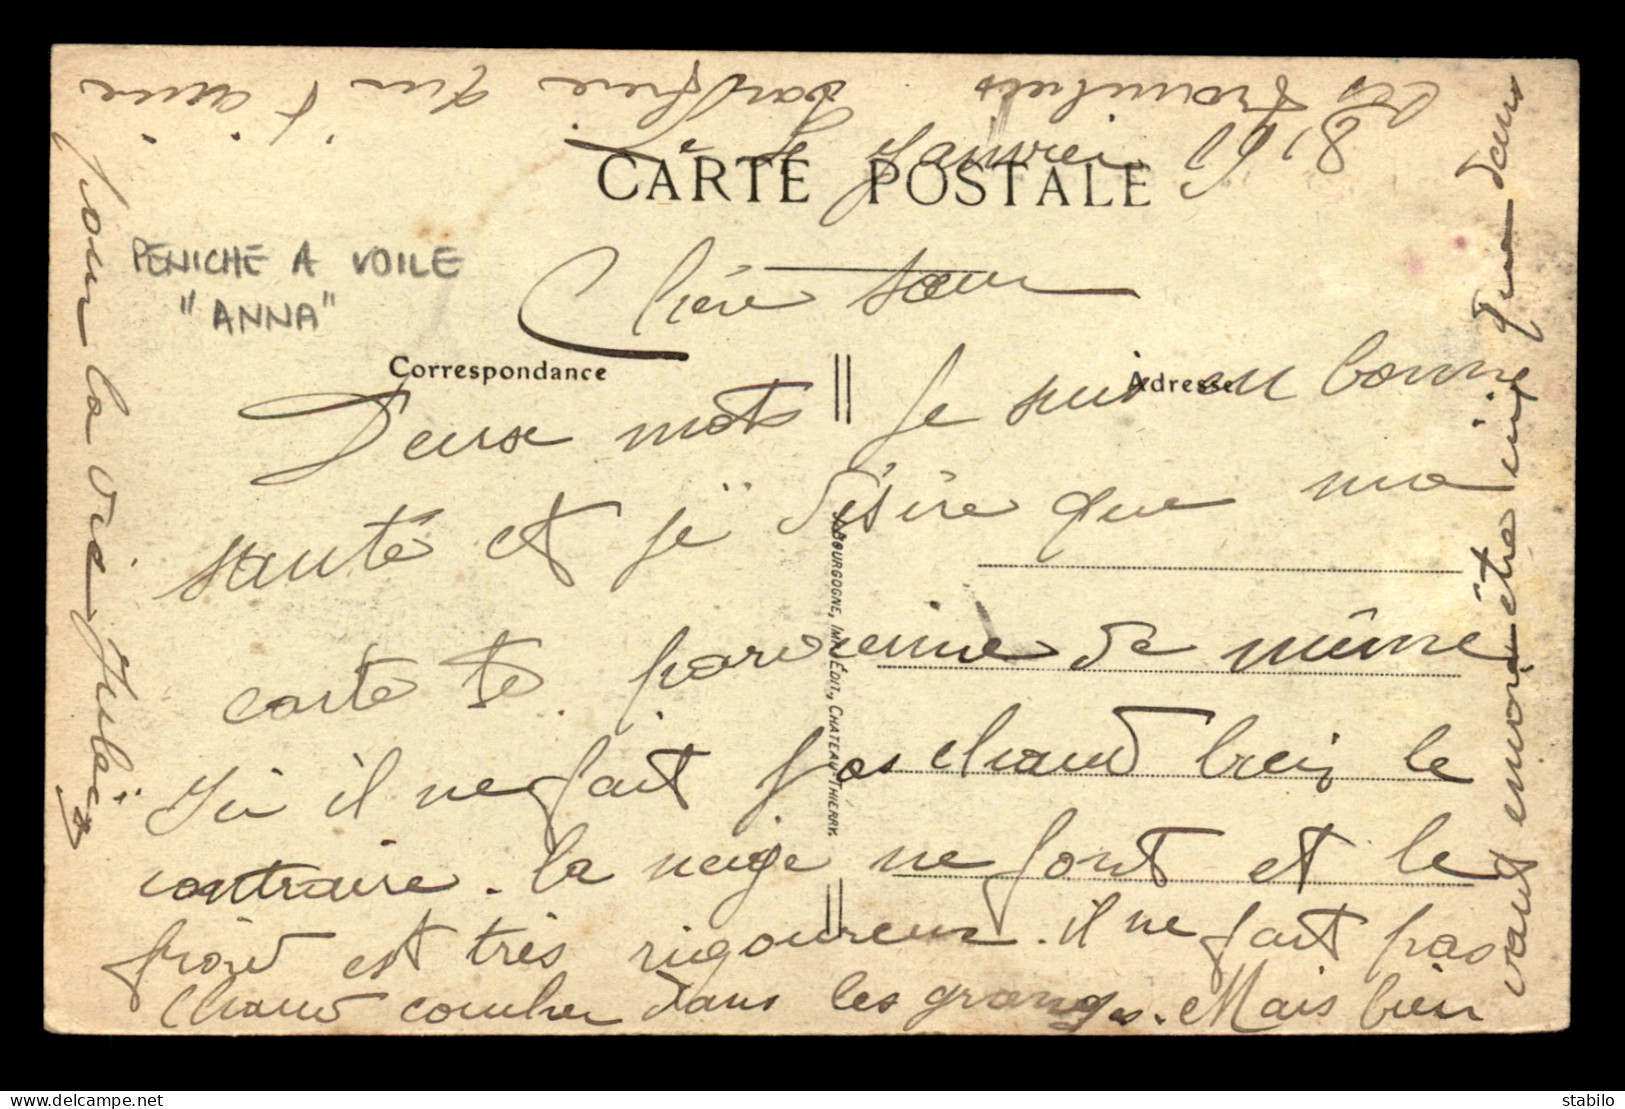 CARTE POSTALE
PENICHE A VOILE
"ANNA"
Correspondance
Adresse
J. BOURGOGNE, IMP. ÉDIT., CHATEAU-THIERRY.
Le 9 Janvier
Chère sœur
Deux mots Je suis en bonne
santé et je désire que ma
carte te parvienne de même
Ici il ne fait pas chaud bien le
contraire. la neige ne font et le
froid est très rigoureux. il ne fait pas
chaud coucher dans les granges. Mais bien
vaut encore être ainsi que dans
les tranchées ton frère qui t'aime
pour la vie Jules
delcampe.net
stabilo